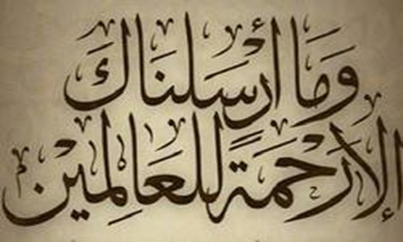 وَمَا أرْسَلنَاكَ
إلاَّ رَحْمَةً للعَالِمِيْن